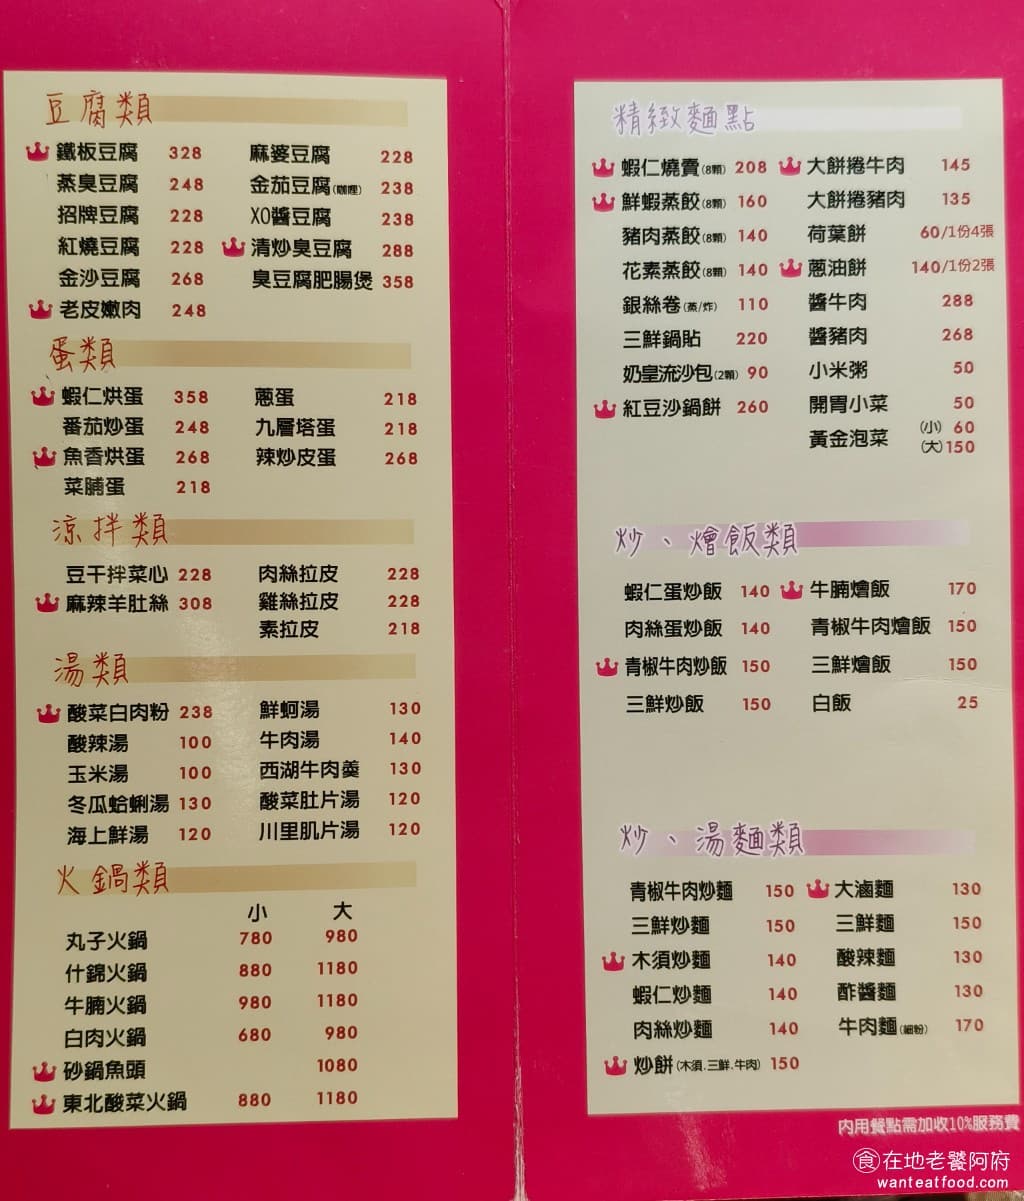 豆腐類
鐵板豆腐 328 麻婆豆腐 228
蒸臭豆腐 248 金茄豆腐(咖哩) 238
招牌豆腐 228 XO醬豆腐 238
紅燒豆腐 228 清炒臭豆腐 288
金沙豆腐 268 臭豆腐肥腸煲 358
老皮嫩肉 248
蛋類
蝦仁烘蛋 358 蔥蛋 218
番茄炒蛋 248 九層塔蛋 218
魚香烘蛋 268 辣炒皮蛋 268
菜脯蛋 218
涼拌類
豆干拌菜心 228 肉絲拉皮 228
麻辣羊肚絲 308 雞絲拉皮 228
素拉皮 218
湯類
酸菜白肉粉 238 鮮蚵湯 130
酸辣湯 100 牛肉湯 140
玉米湯 100 西湖牛肉羹 130
冬瓜蛤蜊湯 130 酸菜肚片湯 120
海上鮮湯 120 川里肌片湯 120
火鍋類
小 大
丸子火鍋 780 980
什錦火鍋 880 1180
牛腩火鍋 980 1180
白肉火鍋 680 980
砂鍋魚頭 1080
東北酸菜火鍋 880 1180
精緻麵點
蝦仁燒賣(8顆) 208 大餅捲牛肉 145
鮮蝦蒸餃(8顆) 160 大餅捲豬肉 135
豬肉蒸餃(8顆) 140 荷葉餅 60/1份4張
花素蒸餃(8顆) 140 蔥油餅 140/1份2張
銀絲卷(蒸/炸) 110 醬牛肉 288
三鮮鍋貼 220 醬豬肉 268
奶皇流沙包(2顆) 90 小米粥 50
紅豆沙鍋餅 260 開胃小菜 50
黃金泡菜 (小) 60
(大) 150
炒、燴飯類
蝦仁蛋炒飯 140 牛腩燴飯 170
肉絲蛋炒飯 140 青椒牛肉燴飯 150
青椒牛肉炒飯 150 三鮮燴飯 150
三鮮炒飯 150 白飯 25
炒、湯麵類
青椒牛肉炒麵 150 大滷麵 130
三鮮炒麵 150 三鮮麵 150
木須炒麵 140 酸辣麵 130
蝦仁炒麵 140 酢醬麵 130
肉絲炒麵 140 牛肉麵(細粉) 170
炒餅(木須.三鮮.牛肉) 150
內用餐點需加收10%服務費
食在地老饕阿府
wanteatfood.com